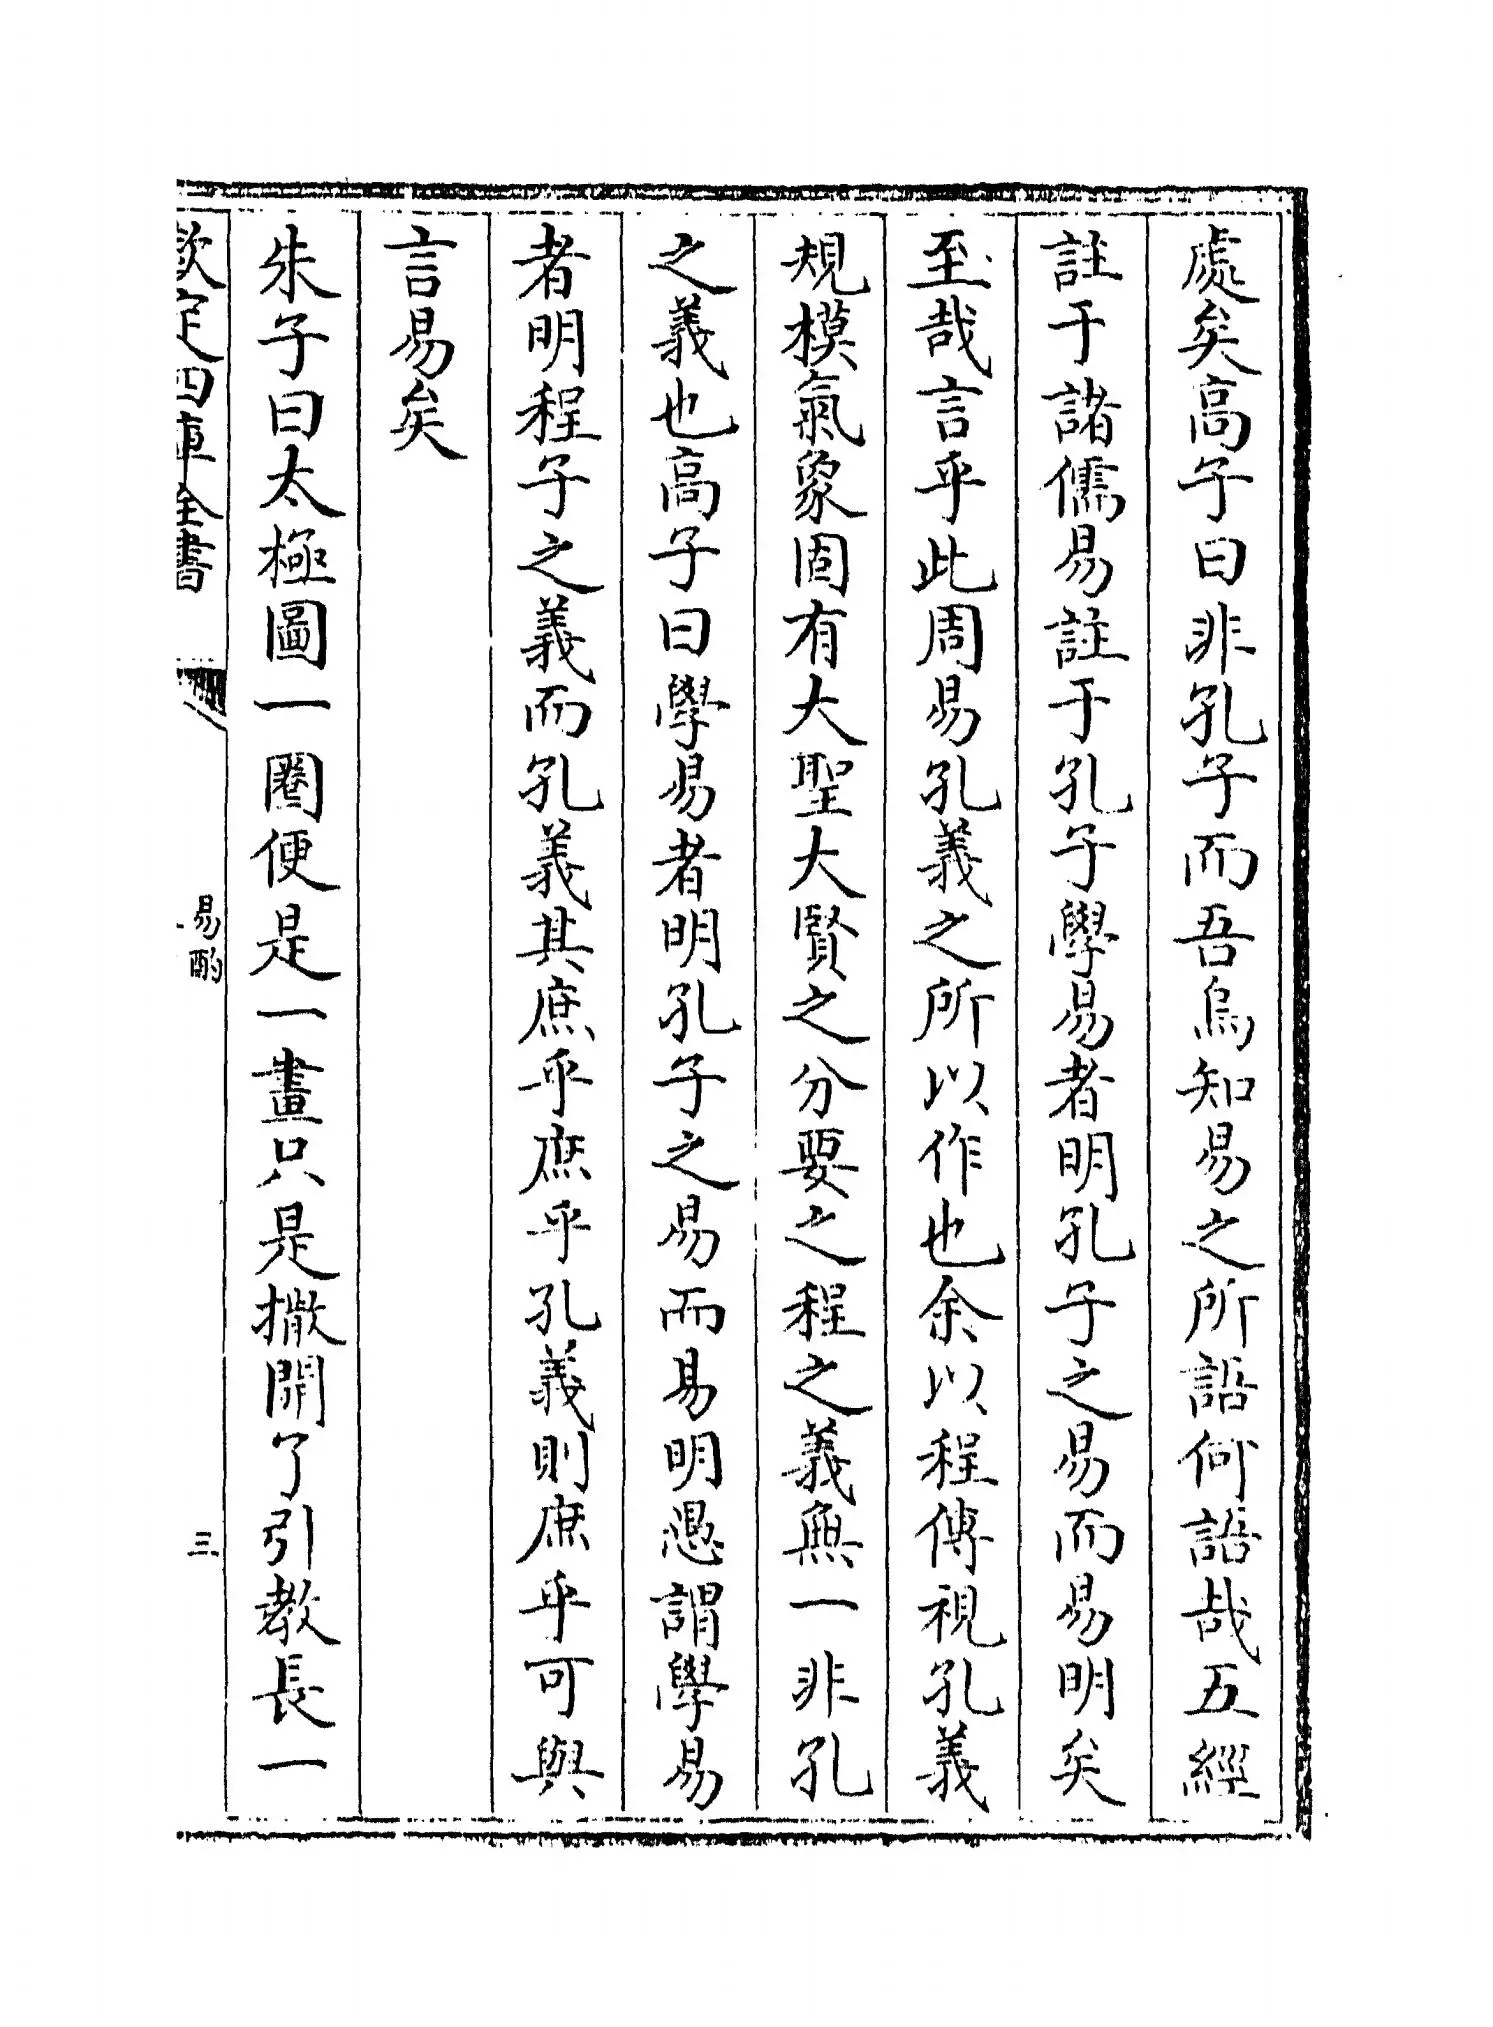 處矣高子曰非孔子而吾烏知易之所語何語哉五經
註于諸儒易註于孔子學易者明孔子之易而易明矣
至哉言乎此周易孔義之所以作也余以程傳視孔義
規模氣象固有大聖大賢之分要之程之義無一非孔
之義也高子曰學易者明孔子之易而易明愚謂學易
者明程子之義而孔義其庶乎庶乎孔義則庶乎可與
言易矣
朱子曰太極圖一圈便是一畫只是撒開了引教長一
欽定四庫全書
易酌
三